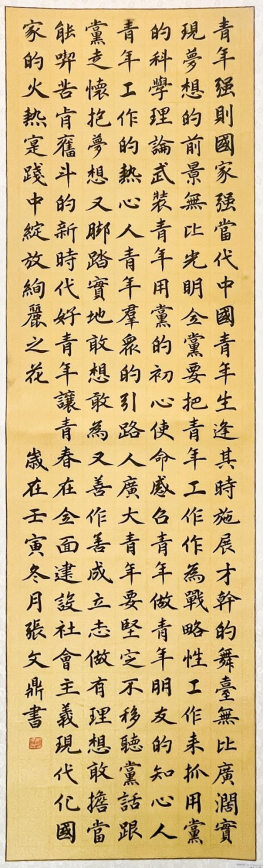 青年强則國家强當代中國青年生逢其時施展才幹的舞臺無比廣濶實
現夢想的前景無比光明全黨要把青年工作作為戰略性工作来抓用黨
的科學理論武裝青年用黨的初心使命感召青年做青年朋友的知心人
青年工作的热心人青年羣衆的引路人廣大青年要堅定不移聽黨話跟
黨走懷抱夢想又脚踏實地敢想敢為又善作善成立志做有理想敢擔當
能喫苦肯奮斗的新時代好青年讓青春在全面建設社會主義現代化國
家的火热寔踐中綻放絢麗之花 歲在壬寅冬月張文鼎書